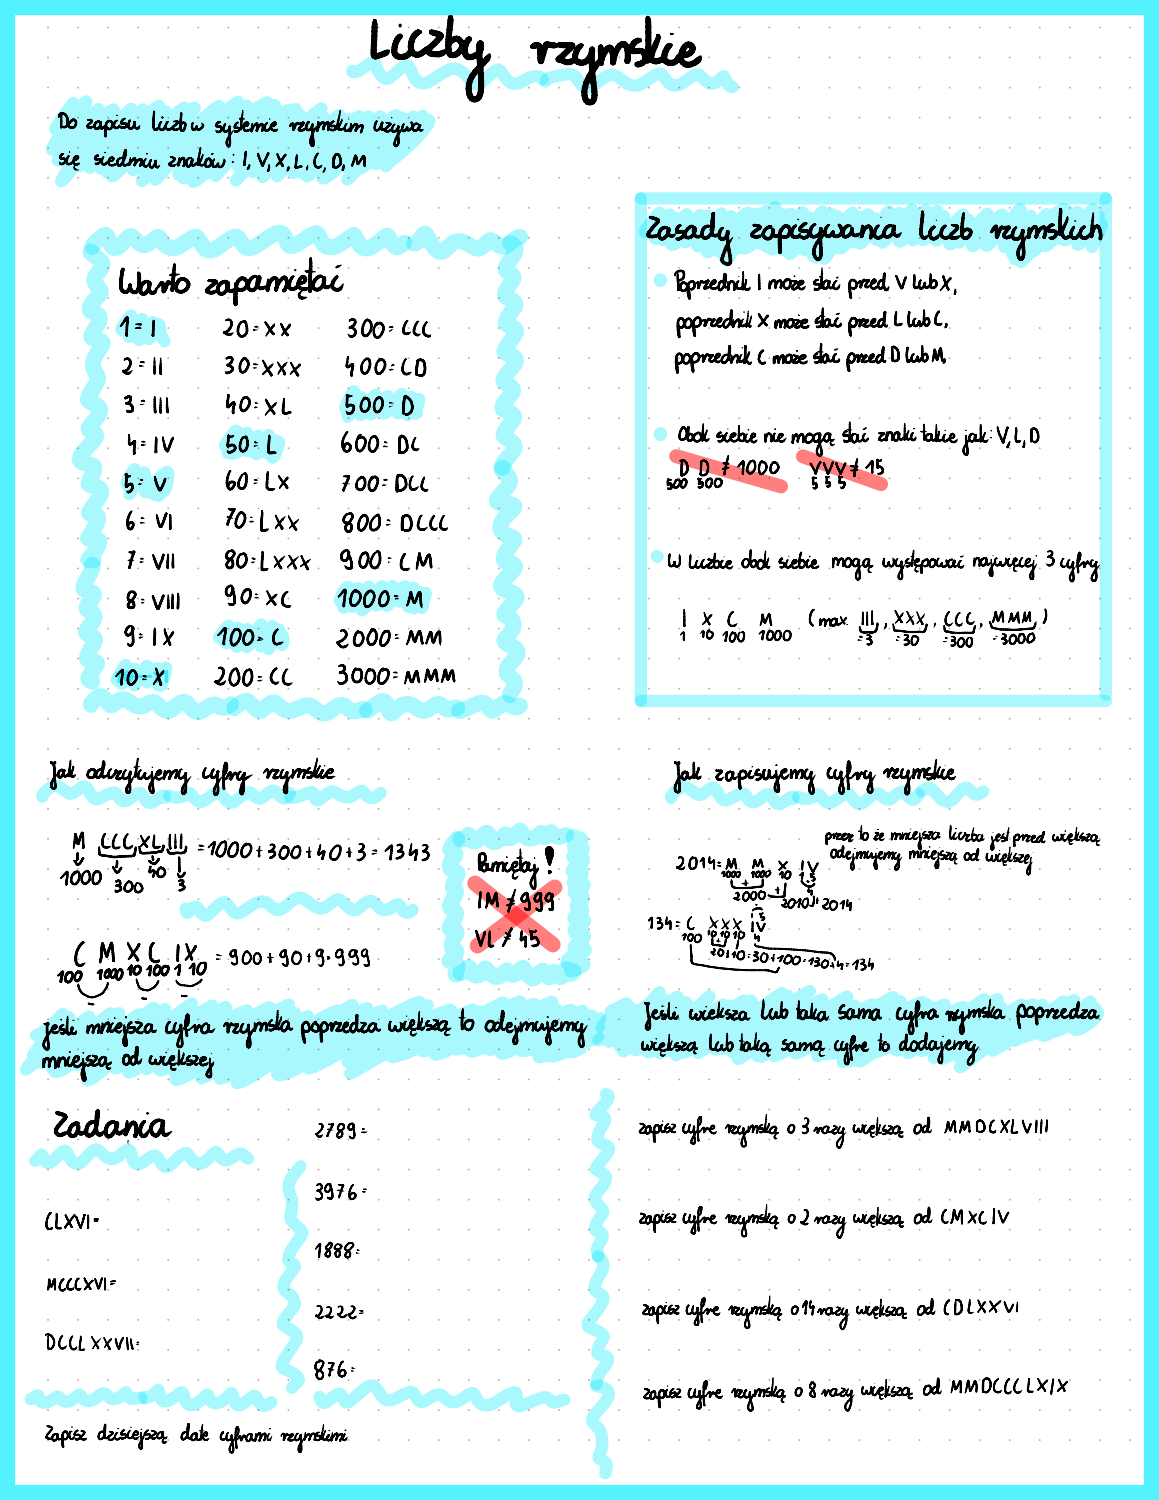 Liczby rzymskie
Do zapisu liczb w systemie rzymskim używa
się siedmiu znaków: I, V, X, L, C, D, M
Warto zapamiętać
1 = I 20 = XX 300 = CCC
2 = II 30 = XXX 400 = CD
3 = III 40 = XL 500 = D
4 = IV 50 = L 600 = DC
5 = V 60 = LX 700 = DCC
6 = VI 70 = LXX 800 = DCCC
7 = VII 80 = LXXX 900 = CM
8 = VIII 90 = XC 1000 = M
9 = IX 100 = C 2000 = MM
10 = X 200 = CC 3000 = MMM
Zasady zapisywania liczb rzymskich
Poprzednik I może stać przed V lub X,
poprzednik X może stać przed L lub C,
poprzednik C może stać przed D lub M,
Obok siebie nie mogą stać znaki takie jak: V, L, D
D D ≠ 1000 VVV ≠ 15
500 500 5 5 5
W liczbie obok siebie mogą występować najwięcej 3 cyfry
I X C M (max III, XXX, CCC, MMM,)
1 10 100 1000 =3 =30 =300 =3000
Jak odczytujemy cyfry rzymskie
M CCC XL III = 1000 + 300 + 40 + 3 = 1343
1000 300 40 3
C M X C IX = 900 + 90 + 9 = 999
100 1000 10 100 1 10
- - -
Pamiętaj!
IM ≠ 999
VL ≠ 45
Jeśli mniejsza cyfra rzymska poprzedza większą to odejmujemy
mniejszą od większej
Jak zapisujemy cyfry rzymskie
przez to że mniejsza liczba jest przed większą
odejmujemy mniejszą od większej
2014 = M M X IV
1000 1000 10 1 5
+ 4
2000 + 2010 2014
134 = C XXX IV
100 10 10 10 4
20+10=30+100=130+4=134
Jeśli wieksza lub taka sama cyfra rzymska poprzedza
większą lub taką samą cyfre to dodajemy
Zadania
CLXVI=
MCCCXVI=
DCCLXXVII=
2789=
3976=
1888=
2222=
876=
Zapisz dzisiejszą date cyframi rzymskimi
zapisz cyfre rzymską o 3 razy większą od MMDCXLVIII
zapisz cyfre rzymską o 2 razy większą od CMXCIV
zapisz cyfre rzymską o 14 razy większą od CDLXXVI
zapisz cyfre rzymską o 8 razy większą od MMDCCCLXIX